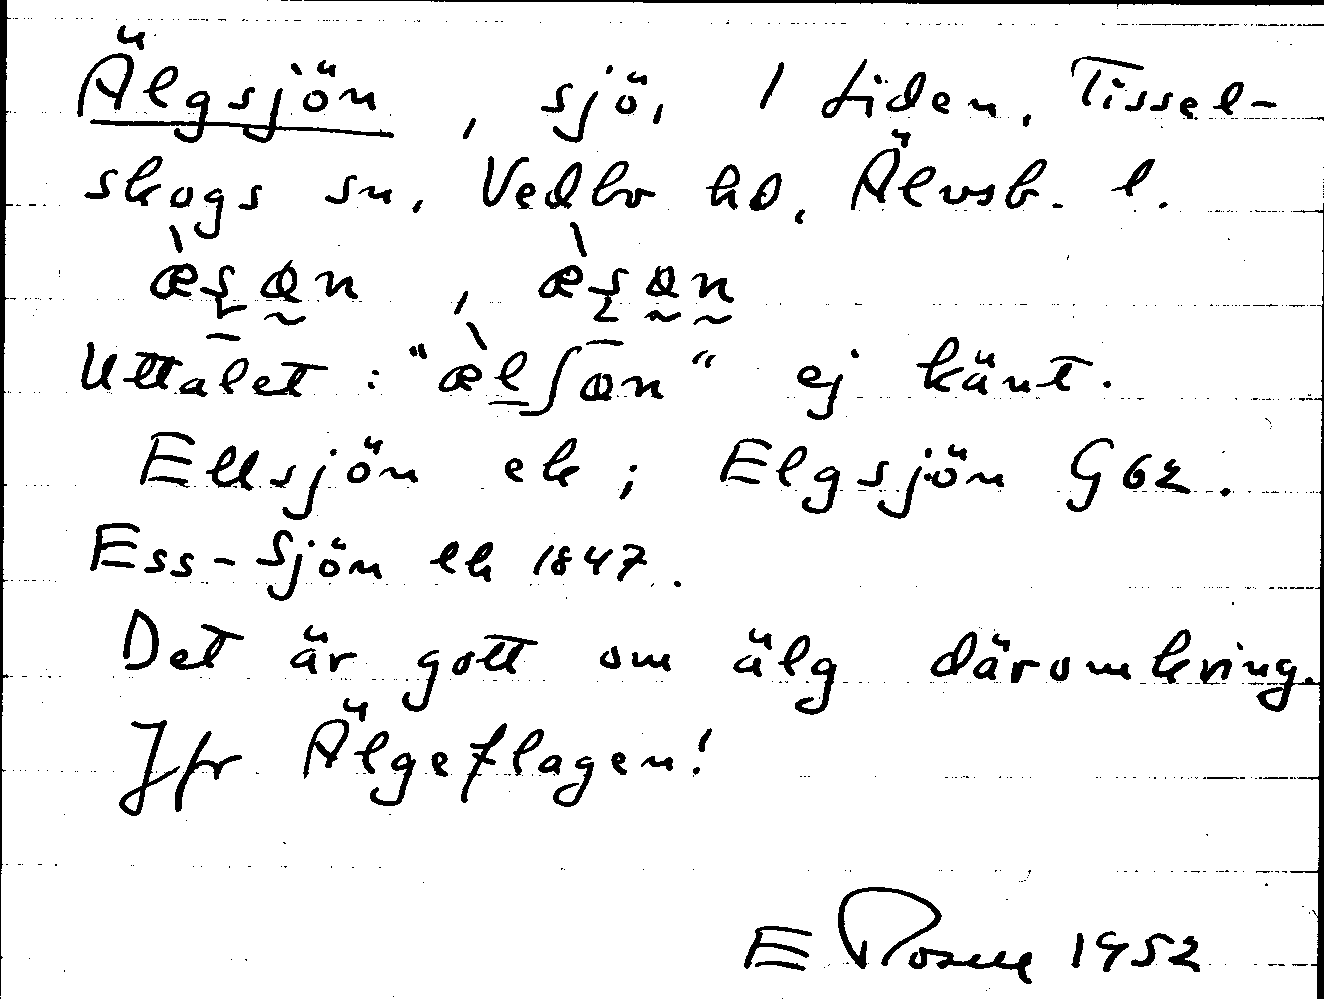 Älgsjön, sjö, 1 Liden, Tissel-
skogs sn, Vedbo hd, Älvsb. l.
Uttalet: "æ̀lʃøn" ej känt.
Ellsjön ek; Elgsjön G62.
Ess-Sjön ek 1847.
Det är gott om älg däromkring.
Jfr Älgeflagen!
E 1952